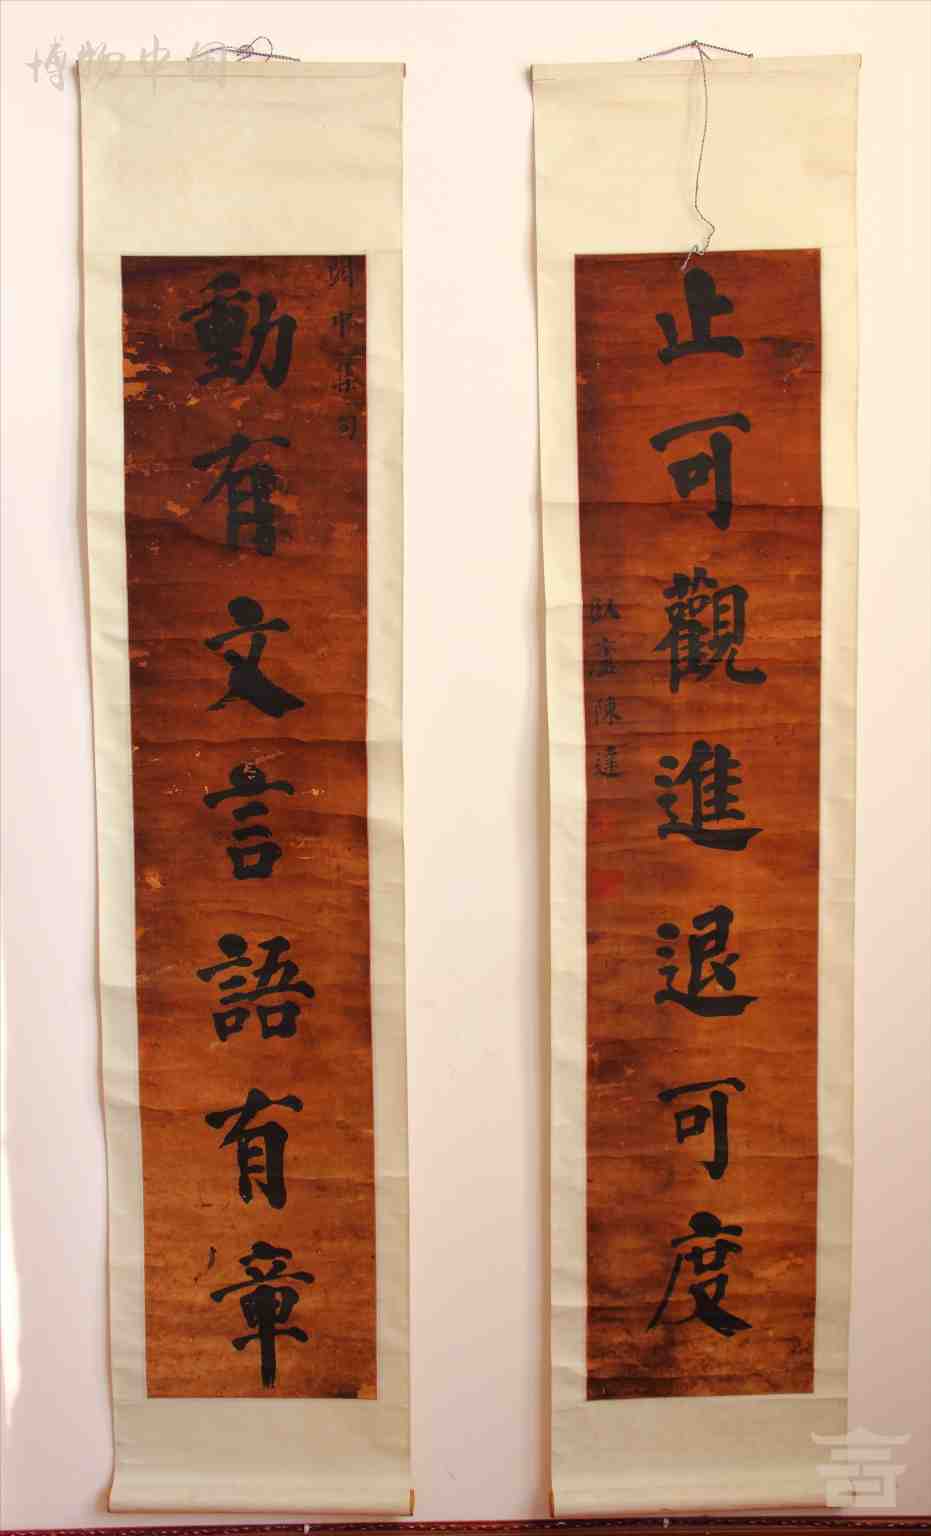 博物中国
止可觀進退可度
臥廬陳達
動有文言語有章